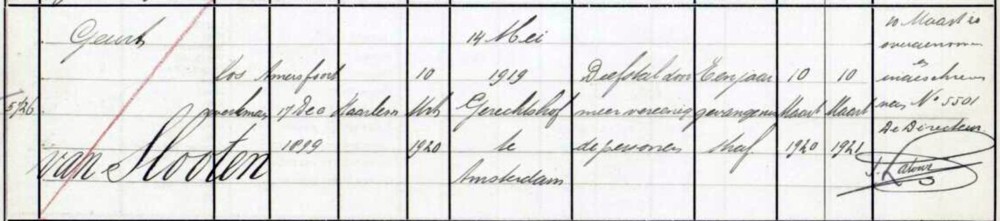 Geurt
van Slooten
los
werkman
Amersfoort
17 Dec
1899
Haarlem
10
Mrt
1920
14 Mei
1919
Gerechtshof
te
Amsterdam
Diefstal door
meer vereenig
de personen
Een jaar
gevangenis
straf
10
Maart
1920
10
Maart
1921
10 Maart 20
overgenomen
en
ingeschreven
No 5501
De Directeur